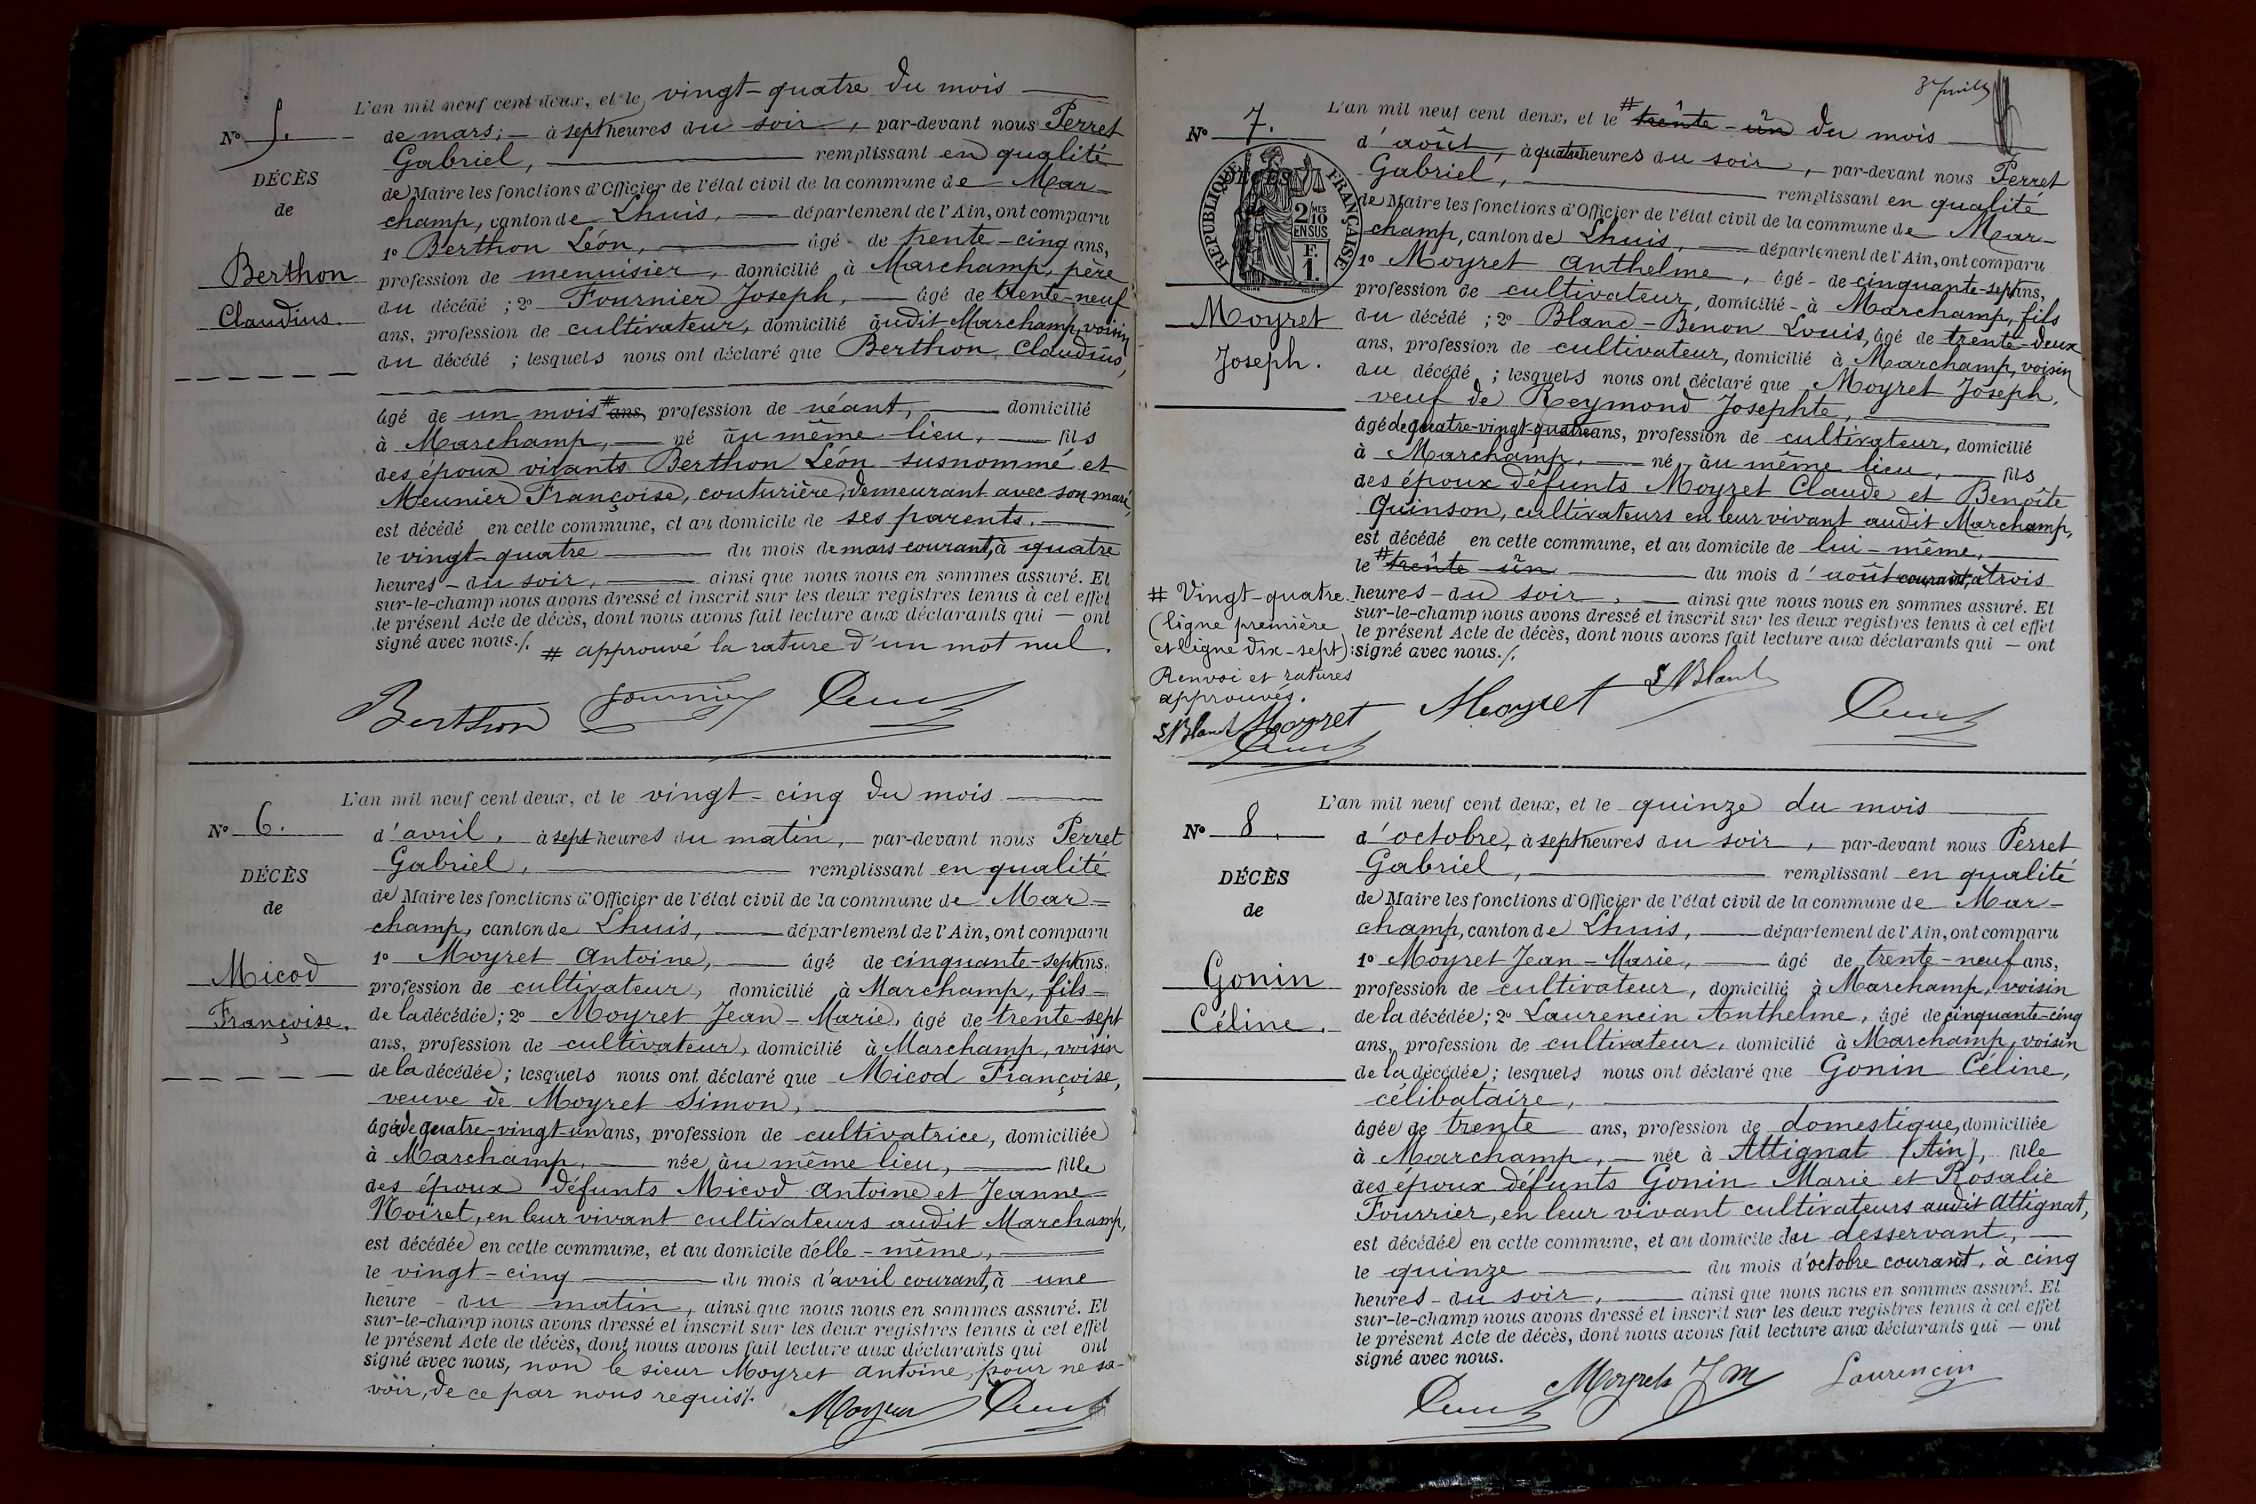 L'an mil neuf cent deux, et le vingt-quatre du mois
N° 5.
de mars, à sept heures du soir, par-devant nous Perret
Gabriel, remplissant en qualité
DÉCÈS
de Maire les fonctions d'Officier de l'état civil de la commune de Mar-
de
champ, canton de Lhuis, département de l'Ain, ont comparu
1° Berthon Léon, âgé de trente-cinq ans,
Berthon
profession de menuisier, domicilié à Marchamp, père
du décédé ; 2° Fournier Joseph, âgé de trente-neuf
Claudius.
ans, profession de cultivateur, domicilié audit Marchamp, voisin
du décédé ; lesquels nous ont déclaré que Berthon Claudius,
âgé de un mois # ans, profession de néant, domicilié
à Marchamp, né au même lieu, fils
des époux vivants Berthon Léon susnommé et
Meunier Françoise, couturière, demeurant avec son mari,
est décédé en cette commune, et au domicile de ses parents,
le vingt-quatre du mois de mars courant, à quatre
heures du soir, ainsi que nous nous en sommes assuré. Et
sur-le-champ nous avons dressé et inscrit sur les deux registres tenus à cet effet
le présent Acte de décès, dont nous avons fait lecture aux déclarants qui — ont
signé avec nous./. # approuvé la rature d'un mot nul.
Berthon Fournier Perret
L'an mil neuf cent deux, et le vingt-cinq du mois
N° 6.
d'avril, à sept heures du matin, par-devant nous Perret
Gabriel, remplissant en qualité
DÉCÈS
de Maire les fonctions d'Officier de l'état civil de la commune de Mar-
de
champ, canton de Lhuis, département de l'Ain, ont comparu
1° Moyret Antoine, âgé de cinquante-sept ans,
Micod
profession de cultivateur, domicilié à Marchamp, fils
Françoise.
de la décédée ; 2° Moyret Jean-Marie, âgé de trente-sept
ans, profession de cultivateur, domicilié à Marchamp, voisin
de la décédée ; lesquels nous ont déclaré que Micod Françoise,
veuve de Moyret Simon,
âgée de quatre-vingt-un ans, profession de cultivatrice, domiciliée
à Marchamp, née au même lieu, fille
des époux défunts Micod Antoine et Jeanne
Noiret, en leur vivant cultivateurs audit Marchamp,
est décédée en cette commune, et au domicile d'elle-même,
le vingt-cinq du mois d'avril courant, à une
heure du matin, ainsi que nous nous en sommes assuré. Et
sur-le-champ nous avons dressé et inscrit sur les deux registres tenus à cet effet
le présent Acte de décès, dont nous avons fait lecture aux déclarants qui ont
signé avec nous, non le sieur Moyret Antoine, pour ne sa-
voir, de ce par nous requis./.
Moyret Perret
L'an mil neuf cent deux, et le # trente-un du mois
N° 7.
d'août, à quatre heures du soir, par-devant nous Perret
Gabriel, remplissant en qualité
DÉCÈS
RÉPUBLIQUE FRANÇAISE
2/10 MES EN SUS
F. 1.
de Maire les fonctions d'Officier de l'état civil de la commune de Mar-
champ, canton de Lhuis, département de l'Ain, ont comparu
1° Moyret Anthelme, âgé de cinquante-sept ans,
profession de cultivateur, domicilié à Marchamp, fils
Moyret
du décédé ; 2° Blanc-Bénon Louis, âgé de trente-deux
ans, profession de cultivateur, domicilié à Marchamp, voisin
Joseph.
du décédé ; lesquels nous ont déclaré que Moyret Joseph,
veuf de Reymond Josephte,
âgé de quatre-vingt-quatre ans, profession de cultivateur, domicilié
à Marchamp, né au même lieu, fils
des époux défunts Moyret Claude et Benoîte
Quinson, cultivateurs en leur vivant audit Marchamp,
est décédé en cette commune, et au domicile de lui-même,
le # trente-un du mois d'août courant, à trois
heures du soir, ainsi que nous nous en sommes assuré. Et
sur-le-champ nous avons dressé et inscrit sur les deux registres tenus à cet effet
le présent Acte de décès, dont nous avons fait lecture aux déclarants qui — ont
signé avec nous./.
# Vingt-quatre
(ligne première
et ligne dix-sept) :
Renvoi et ratures
approuvés.
L Blanc Moyret
Perret
Moyret L Blanc Perret
L'an mil neuf cent deux, et le quinze du mois
N° 8.
d'octobre, à sept heures du soir, par-devant nous Perret
Gabriel, remplissant en qualité
DÉCÈS
de Maire les fonctions d'Officier de l'état civil de la commune de Mar-
de
champ, canton de Lhuis, département de l'Ain, ont comparu
1° Moyret Jean-Marie, âgé de trente-neuf ans,
Gonin
profession de cultivateur, domicilié à Marchamp, voisin
Céline.
de la décédée ; 2° Laurencin Anthelme, âgé de cinquante-cinq
ans, profession de cultivateur, domicilié à Marchamp, voisin
de la décédée ; lesquels nous ont déclaré que Gonin Céline,
célibataire,
âgée de trente ans, profession de domestique, domiciliée
à Marchamp, née à Attignat (Ain), fille
des époux défunts Gonin Marie et Rosalie
Fourrier, en leur vivant cultivateurs audit Attignat,
est décédée en cette commune, et au domicile du desservant,
le quinze du mois d'octobre courant, à cinq
heures du soir, ainsi que nous nous en sommes assuré. Et
sur-le-champ nous avons dressé et inscrit sur les deux registres tenus à cet effet
le présent Acte de décès, dont nous avons fait lecture aux déclarants qui — ont
signé avec nous.
Perret Moyret J M Laurencin